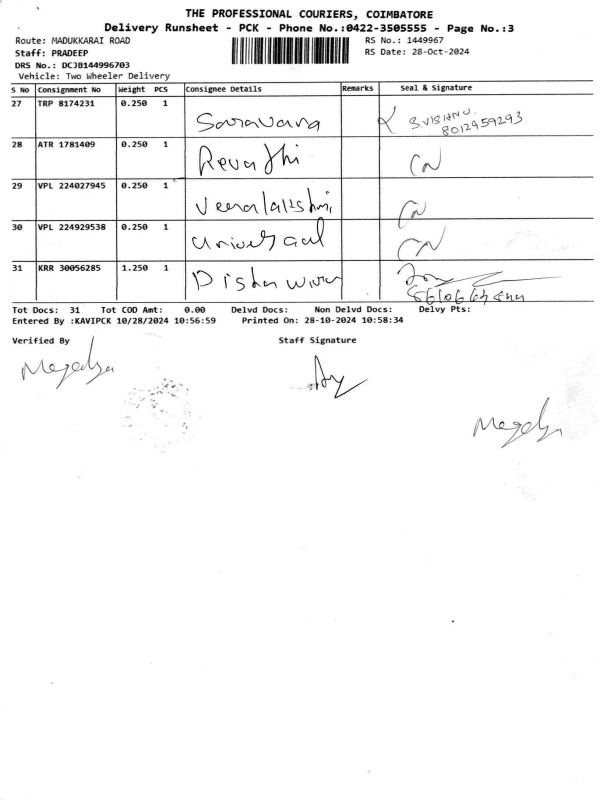 THE PROFESSIONAL COURIERS, COIMBATORE
Delivery Runsheet - PCK - Phone No.:0422-3505555 - Page No.:3
Route: MADUKKARAI ROAD RS No.: 1449967
Staff: PRADEEP RS Date: 28-Oct-2024
DRS No.: DCJB144996703
Vehicle: Two Wheeler Delivery
S No Consignment No Weight PCS Consignee Details Remarks Seal & Signature
27 TRP 8174231 0.250 1 Saravana S.VISHNU
8012959293
28 ATR 1781409 0.250 1 Revathi CN
29 VPL 224027945 0.250 1 CN
30 VPL 224929538 0.250 1 CN
31 KRR 30056285 1.250 1
Tot Docs: 31 Tot COD Amt: 0.00 Delvd Docs: Non Delvd Docs: Delvy Pts:
Entered By :KAVIPCK 10/28/2024 10:56:59 Printed On: 28-10-2024 10:58:34
Verified By Staff Signature